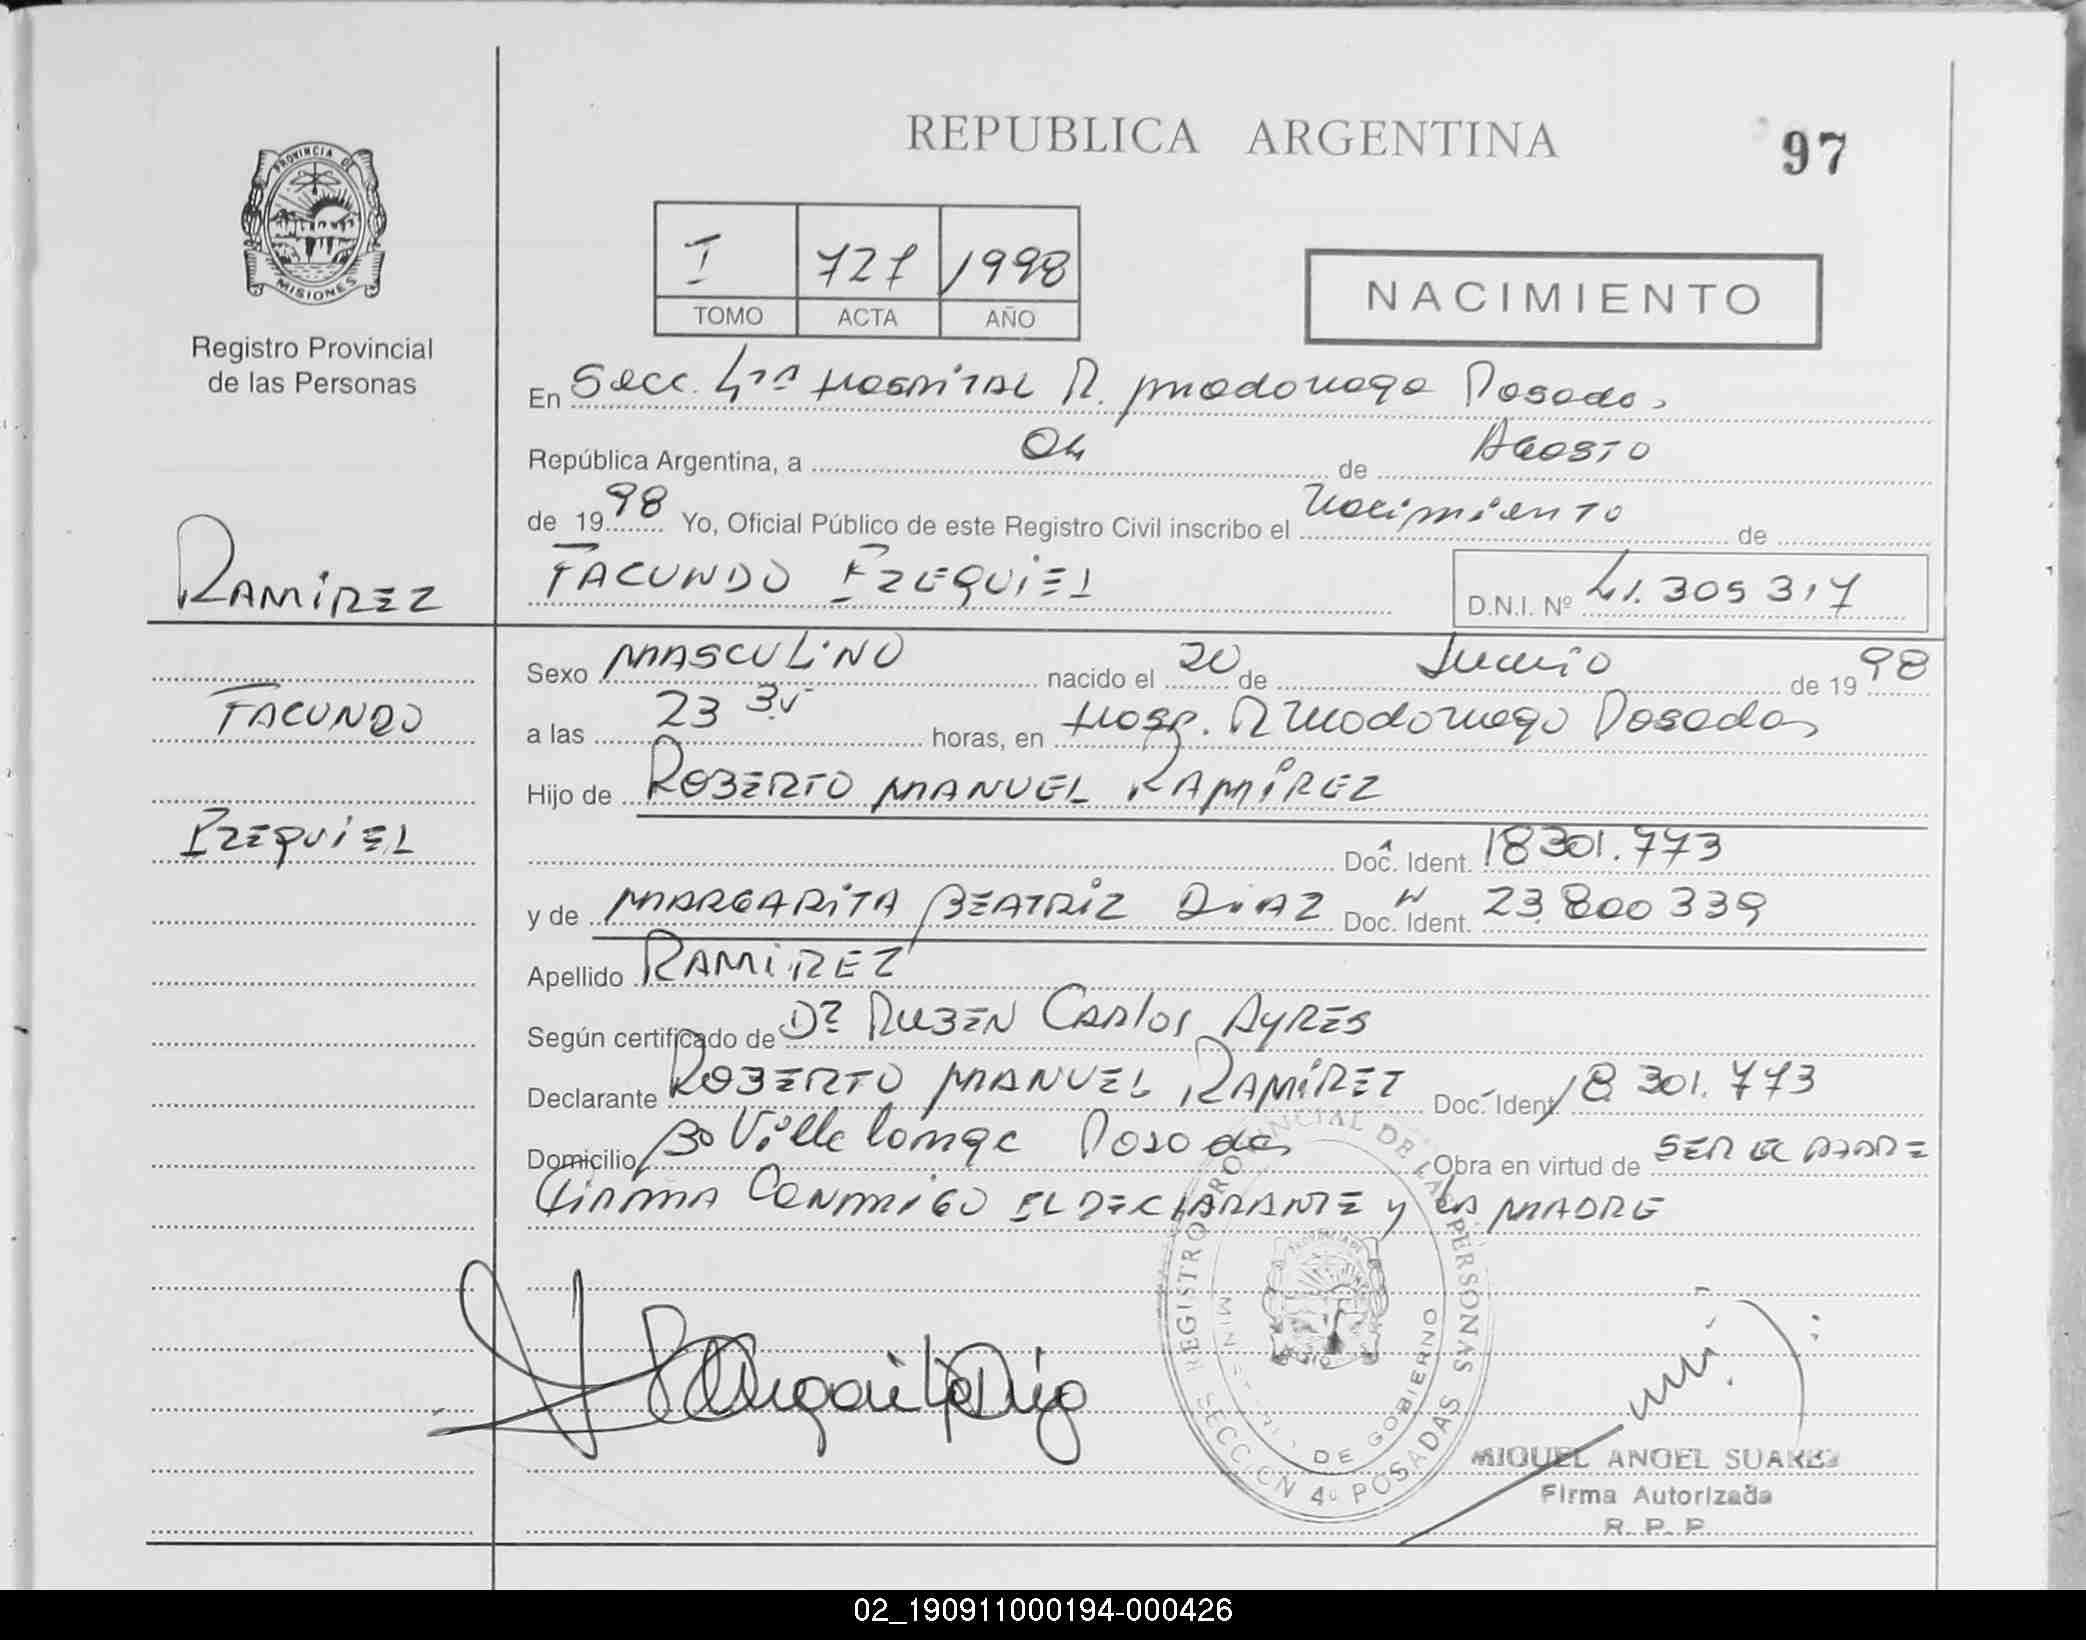 PROVINCIA DE
MISIONES
Registro Provincial
de las Personas
REPUBLICA ARGENTINA
97
I 727 1998
TOMO ACTA AÑO
NACIMIENTO
En Secc. 4ta Hospital R. Madariaga Posadas
República Argentina, a 04 de Agosto
de 1998 Yo, Oficial Público de este Registro Civil inscribo el Nacimiento de
RAMÍREZ
FACUNDO EZEQUIEL D.N.I. Nº 41.305 317
Sexo MASCULINO nacido el 20 de Junio de 1998
FACUNDO
a las 23 35 horas, en Hosp. R Madariaga Posadas
Hijo de ROBERTO MANUEL RAMÍREZ
EZEQUIEL
Doc. Ident. 18301.773
y de MARGARITA BEATRIZ DIAZ Doc. Ident. 23.800 339
Apellido RAMIREZ
Según certificado de Dr RUBEN CARLOS AYRES
Declarante ROBERTO MANUEL RAMÍREZ Doc. Ident. 18 301.773
Domicilio Bo Villa Longa Posadas Obra en virtud de SER EL PADRE
FIRMA CONMIGO EL DECLARANTE y LA MADRE
REGISTRO PROVINCIAL DE LAS PERSONAS
MINISTERIO DE GOBIERNO
SECCION 4º POSADAS
Margarita Diaz
MIGUEL ANGEL SUAREZ
Firma Autorizada
R. P. P.
02_190911000194-000426